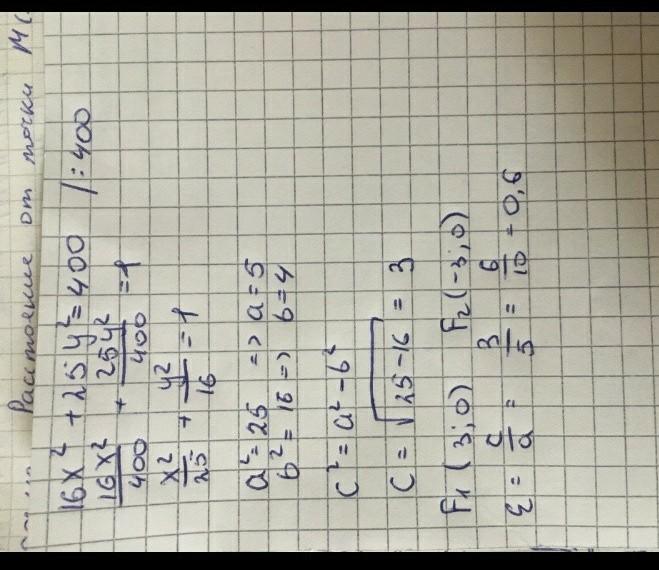 Расстояние от точки М(
16x² + 25y² = 400 /:400
16x²/400 + 25y²/400 = 1
x²/25 + y²/16 = 1
a² = 25 => a = 5
b² = 16 => b = 4
c² = a² - b²
c = √25-16 = 3
F₁(3;0) F₂(-3;0)
ε = c/a = 3/5 = 6/10 = 0,6